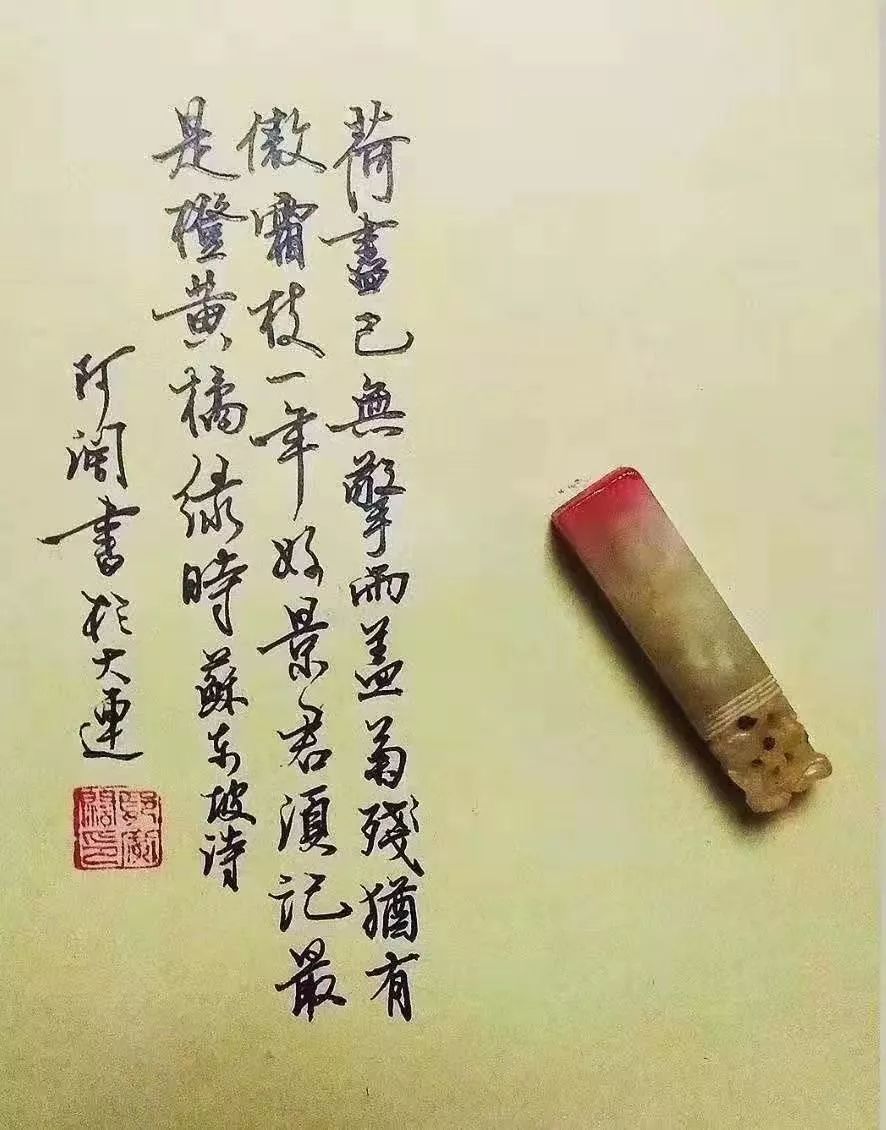 荷盡已無擎雨盖菊殘猶有
傲霜枝一年好景君須記最
是橙黄橘綠時 蘇东坡诗
阿阔書於大連